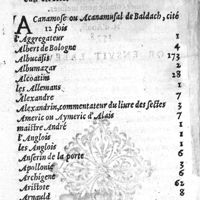 Acanamose ou Acanamusal de Baldach, cité
12 fois
l'Aggregateur 1
Albert de Bologne 4
Albucasis 173
Albumazar 2
Alcoatim 28
les Allemans 1
Alexandre 7
Alexandrin, commentateur du liure des sectes 1
Americ ou Aymeric d'Alais 7
maistre André 1
l'Anglois 1
les Anglois 1
Anserin de la porte 7
Apollonie 3
Archigene 6
Aristote 62
Arnauld 8